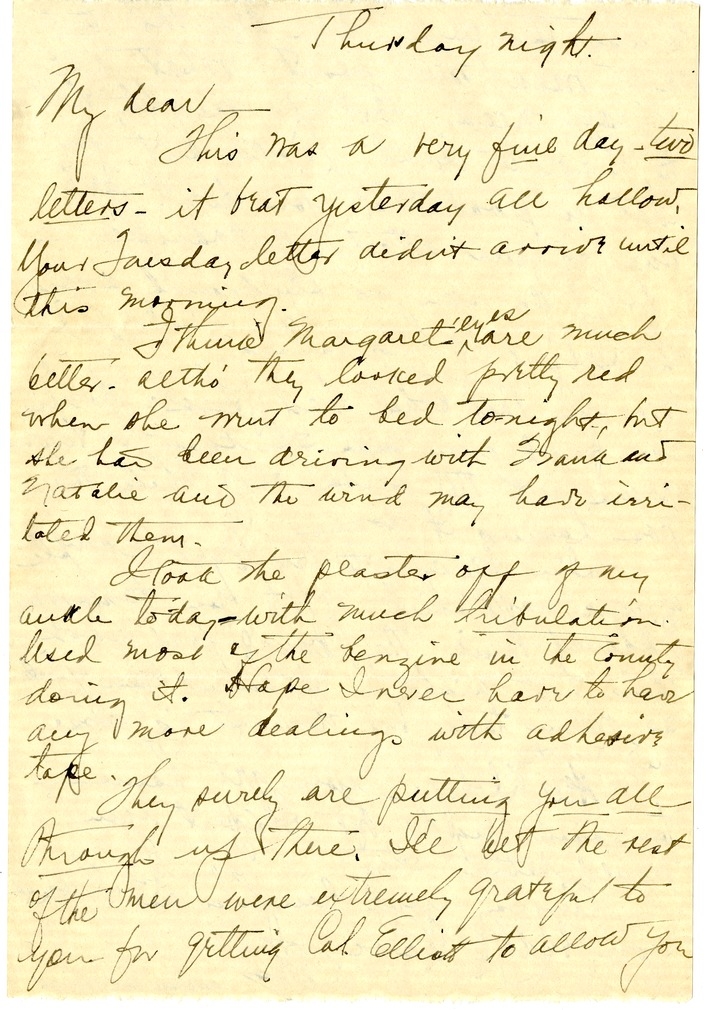 Thursday night.
My dear —
This was a very fine day - two
letters - it beat yesterday all hollow.
Your Tuesday letter didn't arrive until
this morning.
I think Margaret' eyes are much
better - altho' they looked pretty red
when she went to bed to-night, but
she had been driving with Frank and
Natalie and the wind may have irri-
tated them.
I took the plaster off of my
ankle today - with much tribulation.
Used most of the benzine in the County
doing it. Hope I never have to have
any more dealings with adhesive
tape.
They surely are putting you all
through up there. I'll bet the rest
of the men were extremely grateful to
you for getting Col. Elliott to allow you